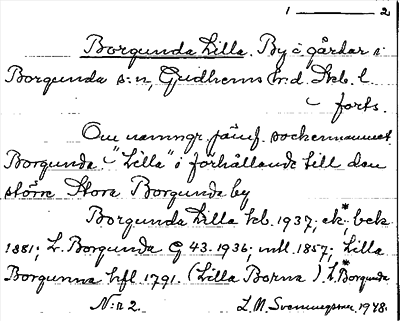 1 — 2
Borgunda Lilla. By o gårdar i
Borgunda s:n, Gudhems hrd. Skb. l.
forts.
Om namngr. jämf. sockennamnet
Borgunda. "Lilla" i förhållande till den
större Stora Borgunda by
Borgunda Lilla kb. 1937; ek*; beck
1881; L. Borgunda G 43. 1936; mtl. 1857; Lilla
Borgunna hfl. 1791. (Lilla Borna). L.* Borgunda
N:r 2. L. M. Svenungsson 1948.